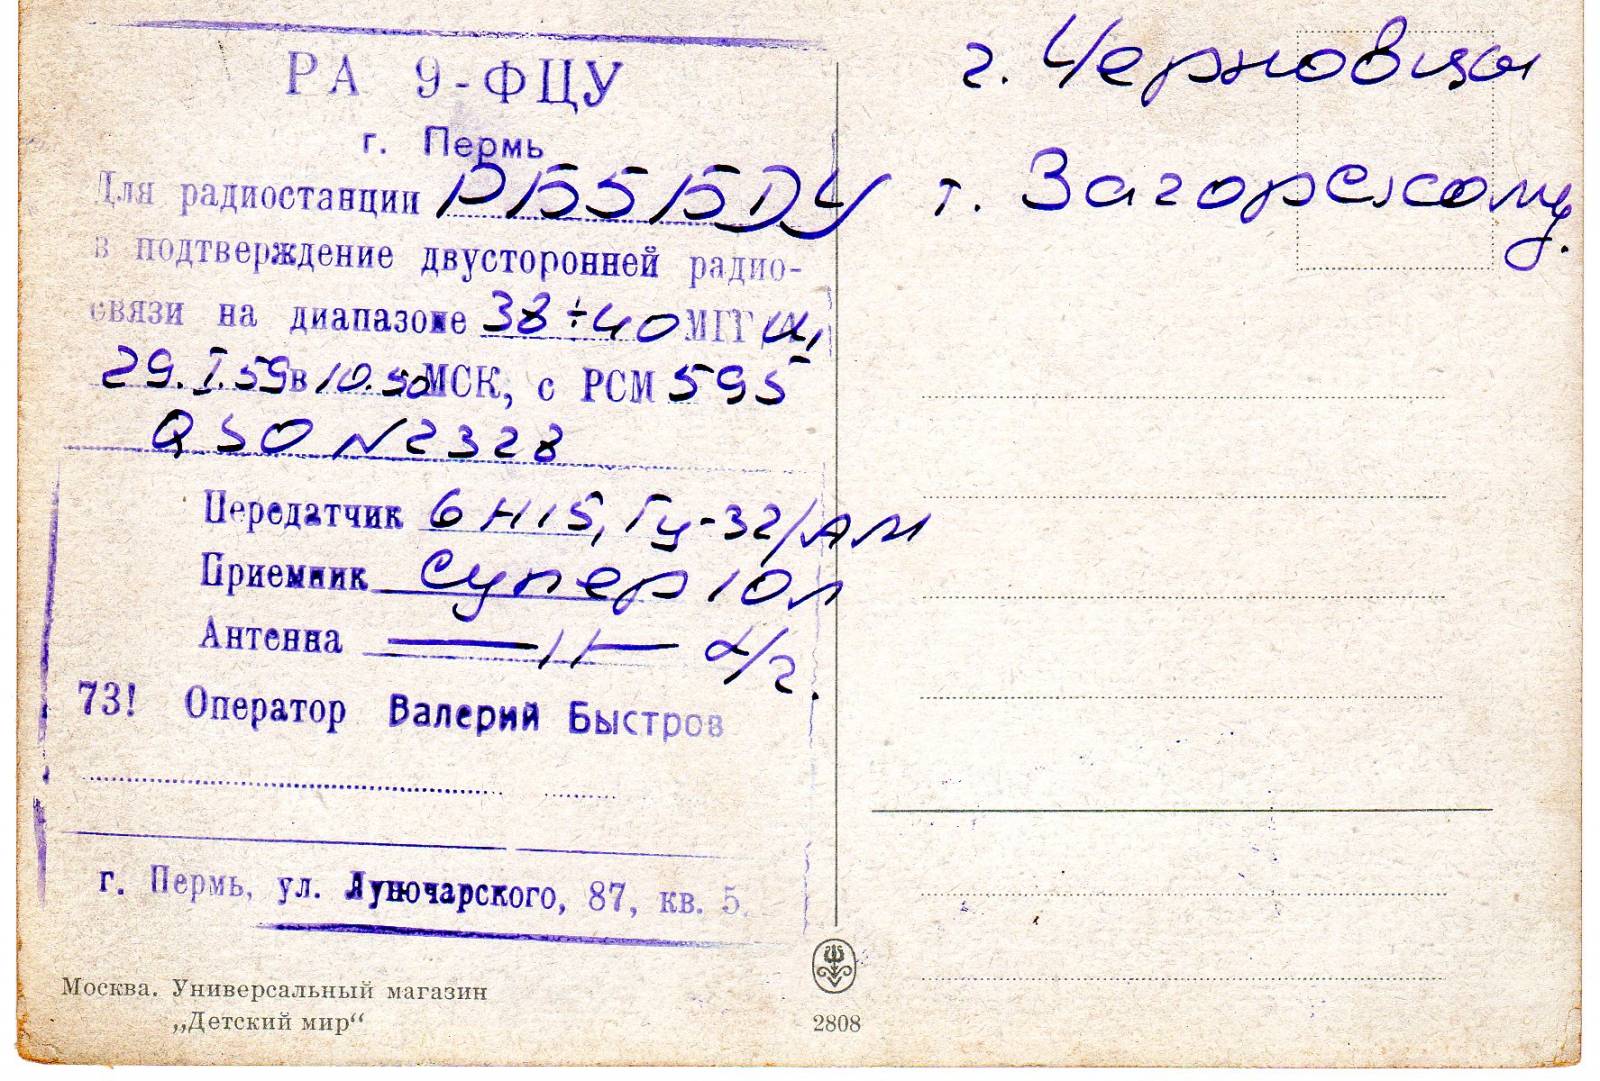 РА 9-ФЦУ
г. Пермь
Для радиостанции РБ5БДУ
в подтверждение двусторонней радио-
связи на диапазоне 38÷40 МГГЦ,
29.I.59 в 10.50 МСК, с РСМ 595
QSO N2328
Передатчик 6Н15, Гу-32/АМ
Приемник Супер 10л
Антенна —〃— д/г.
73! Оператор Валерий Быстров
г. Пермь, ул. Луночарского, 87, кв. 5.
Москва. Универсальный магазин
„Детский мир“
2808
г. Черновцы
т. Загорскому.